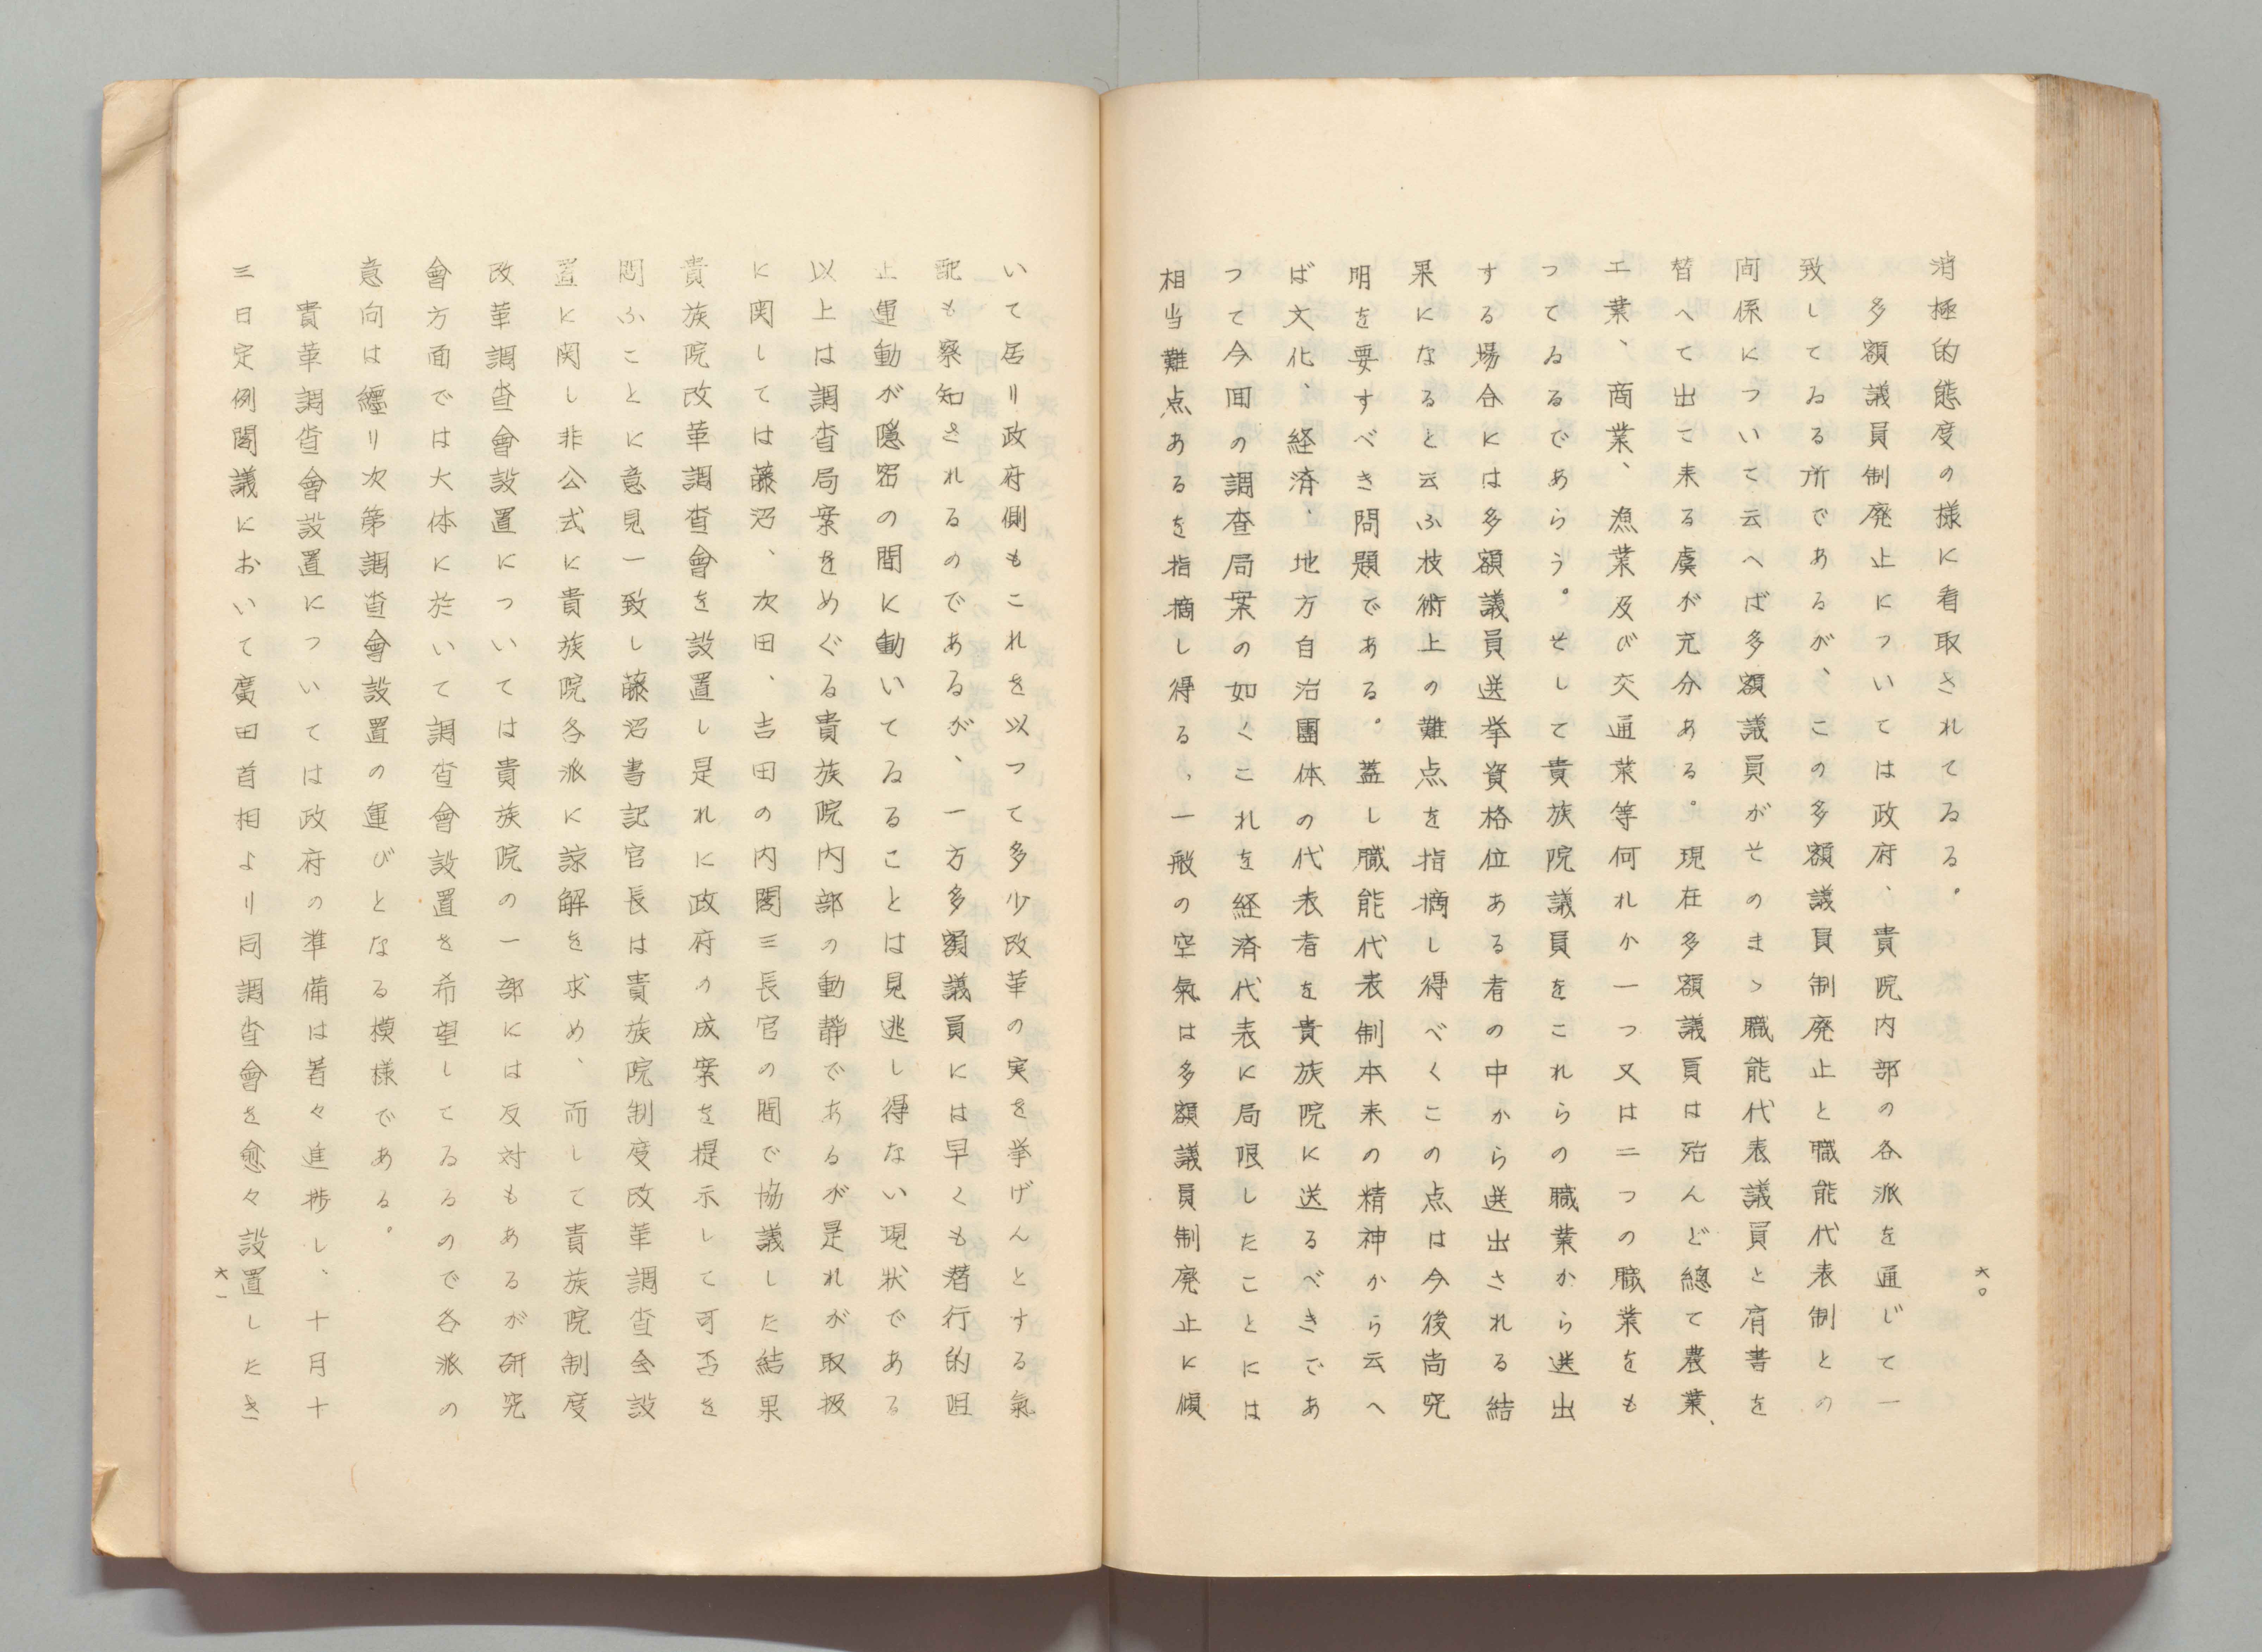 六〇
消極的態度の様に看取されてゐる。
多額議員制廃止については政府、貴院内部の各派を通じて一
致してゐる所であるが、この多額議員制廃止と職能代表制との
関係について云へば多額議員がそのまゝ職能代表議員と肩書を
替へて出て来る虞が充分ある。現在多額議員は殆んど總て農業、
工業、商業、漁業及び交通業等何れか一つ又は二つの職業をも
つてゐるであらう。そして貴族院議員をこれらの職業から選出
する場合には多額議員送挙資格位ある者の中から選出される結
果になると云ふ技術上の難点を指摘し得べくこの点は今後尚究
明を要すべき問題である。蓋し職能代表制本来の精神から云へ
ば文化、経済、地方自治團体の代表者を貴族院に送るべきであ
つて今囬の調査局案の如くこれを経済代表に局限したことには
相当難点あるを指摘し得る、一般の空氣は多額議員制廃止に傾
いて居り政府側もこれを以つて多少改革の実を挙げんとする氣
配も察知されるのであるが、一方多額議員には早くも潜行的阻
止運動が隠密の間に動いてゐることは見逃し得ない現状である
以上は調査局案をめぐる貴族院内部の動静であるが是れが取扱
に関しては藤沼、次田、吉田の内閣三長官の間で協議した結果
貴族院改革調査會を設置し是れに政府の成案を提示して可否を
問ふことに意見一致し藤沼書記官長は貴族院制度改革調査会設
置に関し非公式に貴族院各派に諒解を求め、而して貴族院制度
改革調査會設置については貴族院の一部には反対もあるが研究
會方面では大体に於いて調査會設置を希望してゐるので各派の
意向は纒り次第調査會設置の運びとなる模様である。
貴革調査會設置については政府の準備は着々進捗し、十月十
三日定例閣議において廣田首相より同調査會を愈々設置したき
六一